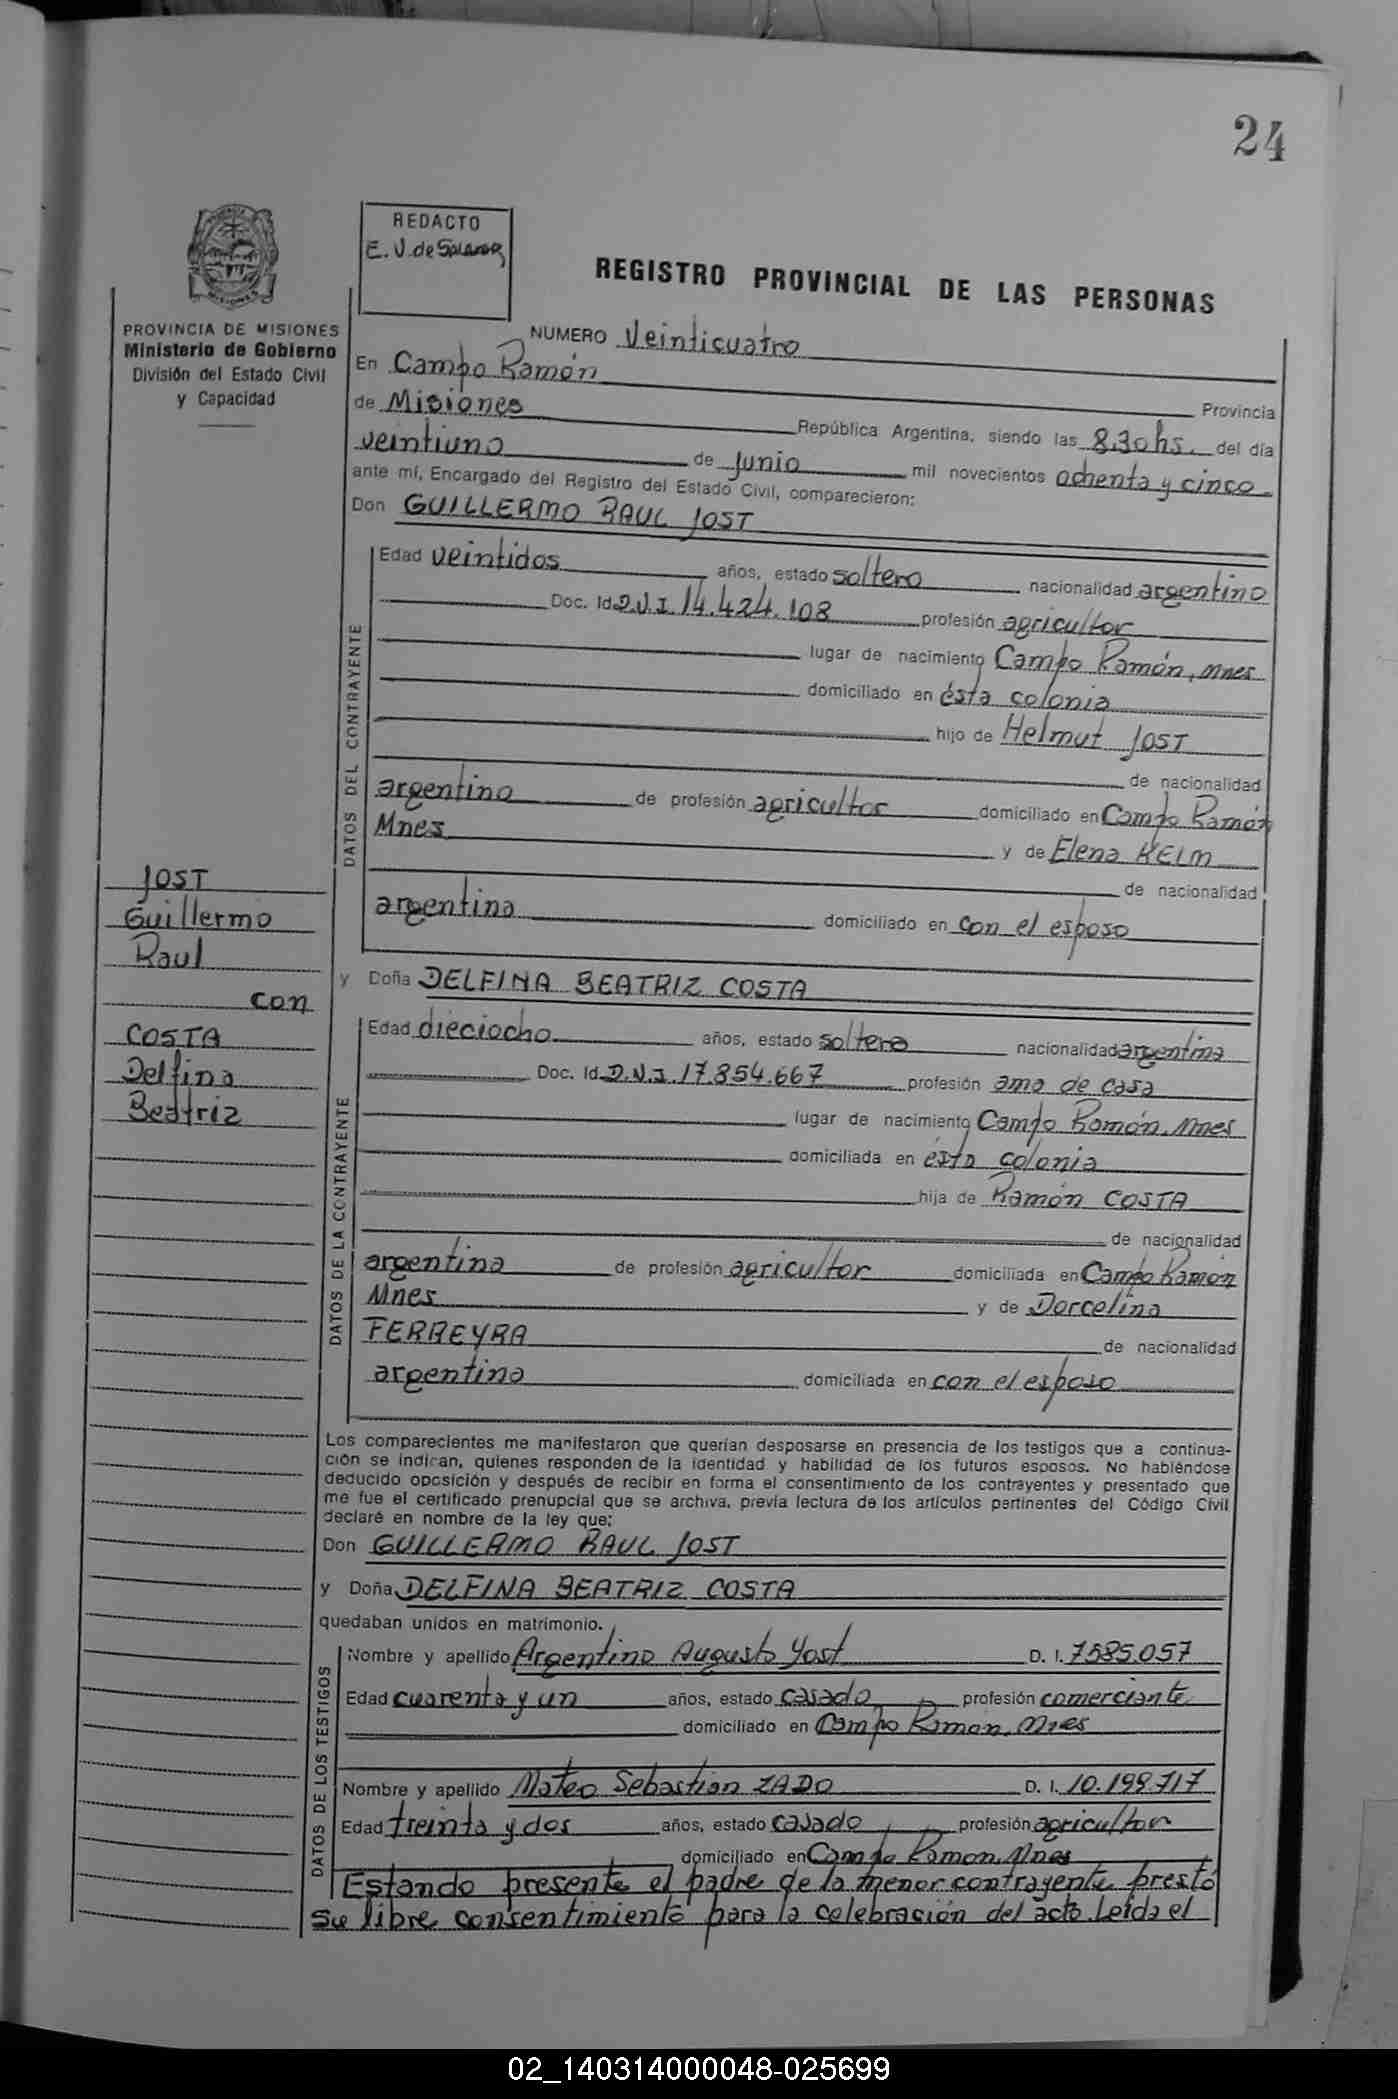 24
REDACTO
E. V. de
REGISTRO PROVINCIAL DE LAS PERSONAS
PROVINCIA DE MISIONES
Ministerio de Gobierno
División del Estado Civil
y Capacidad
NUMERO Veinticuatro
En Campo Ramón
Provincia
de Misiones República Argentina, siendo las 8,30 hs. del día
veintiuno de junio mil novecientos ochenta y cinco
ante mí, Encargado del Registro del Estado Civil, comparecieron:
Don GUILLERMO RAUL JOST
DATOS DEL CONTRAYENTE
Edad veintidos años, estado soltero nacionalidad argentino
Doc. Id D.N.I. 14.424.108 profesión agricultor
lugar de nacimiento Campo Ramón, Mnes
domiciliado en ésta colonia
hijo de Helmut JOST
de nacionalidad
argentina de profesión agricultor domiciliado en Campo Ramón
Mnes y de Elena KELM
de nacionalidad
argentina domiciliado en con el esposo
JOST
Guillermo
Raul
con
COSTA
Delfina
Beatriz
y Doña DELFINA BEATRIZ COSTA
DATOS DE LA CONTRAYENTE
Edad dieciocho años, estado soltera nacionalidad argentina
Doc. Id D.N.I. 17.854.667 profesión ama de casa
lugar de nacimiento Campo Ramón, Mnes
domiciliada en ésta colonia
hija de Ramón COSTA
de nacionalidad
argentina de profesión agricultor domiciliada en Campo Ramón
Mnes y de Dorcelina
FERREYRA de nacionalidad
argentina domiciliada en con el esposo
Los comparecientes me manifestaron que querían desposarse en presencia de los testigos que a continua-
ción se indican, quienes responden de la identidad y habilidad de los futuros esposos. No habiéndose
deducido oposición y después de recibir en forma el consentimiento de los contrayentes y presentado que
me fue el certificado prenupcial que se archiva, previa lectura de los artículos pertinentes del Código Civil
declaré en nombre de la ley que:
Don GUILLERMO RAUL JOST
y Doña DELFINA BEATRIZ COSTA
quedaban unidos en matrimonio.
DATOS DE LOS TESTIGOS
Nombre y apellido Argentino Augusto Yost D. I. 7585.057
Edad cuarenta y un años, estado casado profesión comerciante
domiciliado en Campo Ramon, Mnes
Nombre y apellido Mateo Sebastian ZADO D. I. 10.199.717
Edad treinta y dos años, estado casado profesión agricultor
domiciliado en Campo Ramon, Mnes
Estando presente el padre de la menor contrayente prestó
su libre consentimiento para la celebración del acto. Leída el
02_140314000048-025699